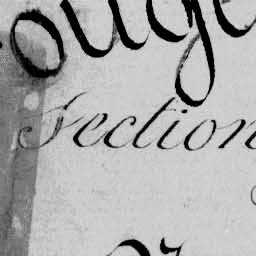 ouge
Section